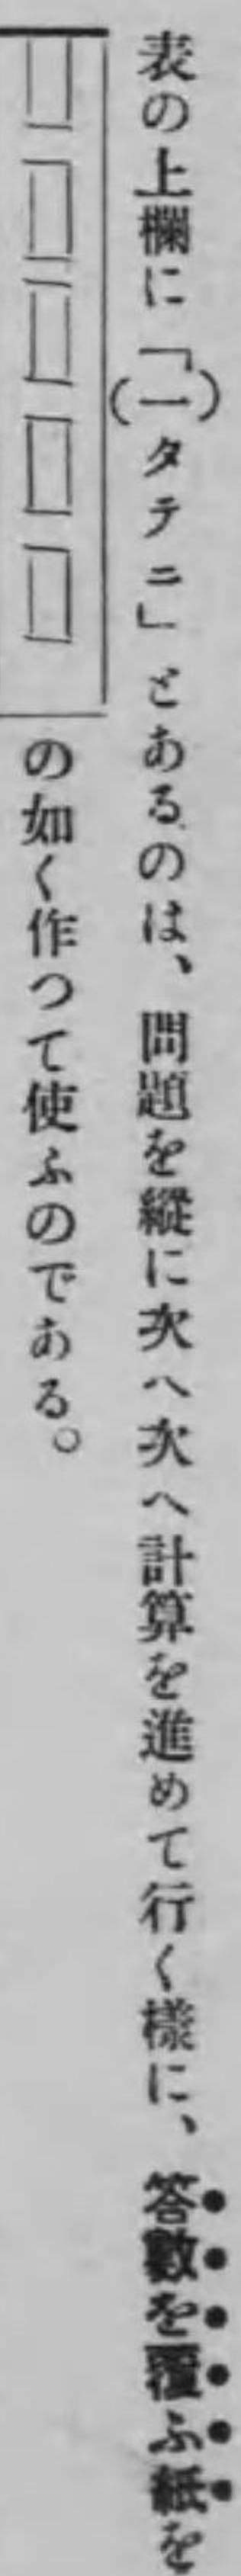 表の上欄に「(一)タテニ」とあるのは、問題を縱に次へ次へ計算を進めて行く樣に、答數を覆ふ紙を
の如く作つて使ふのである。